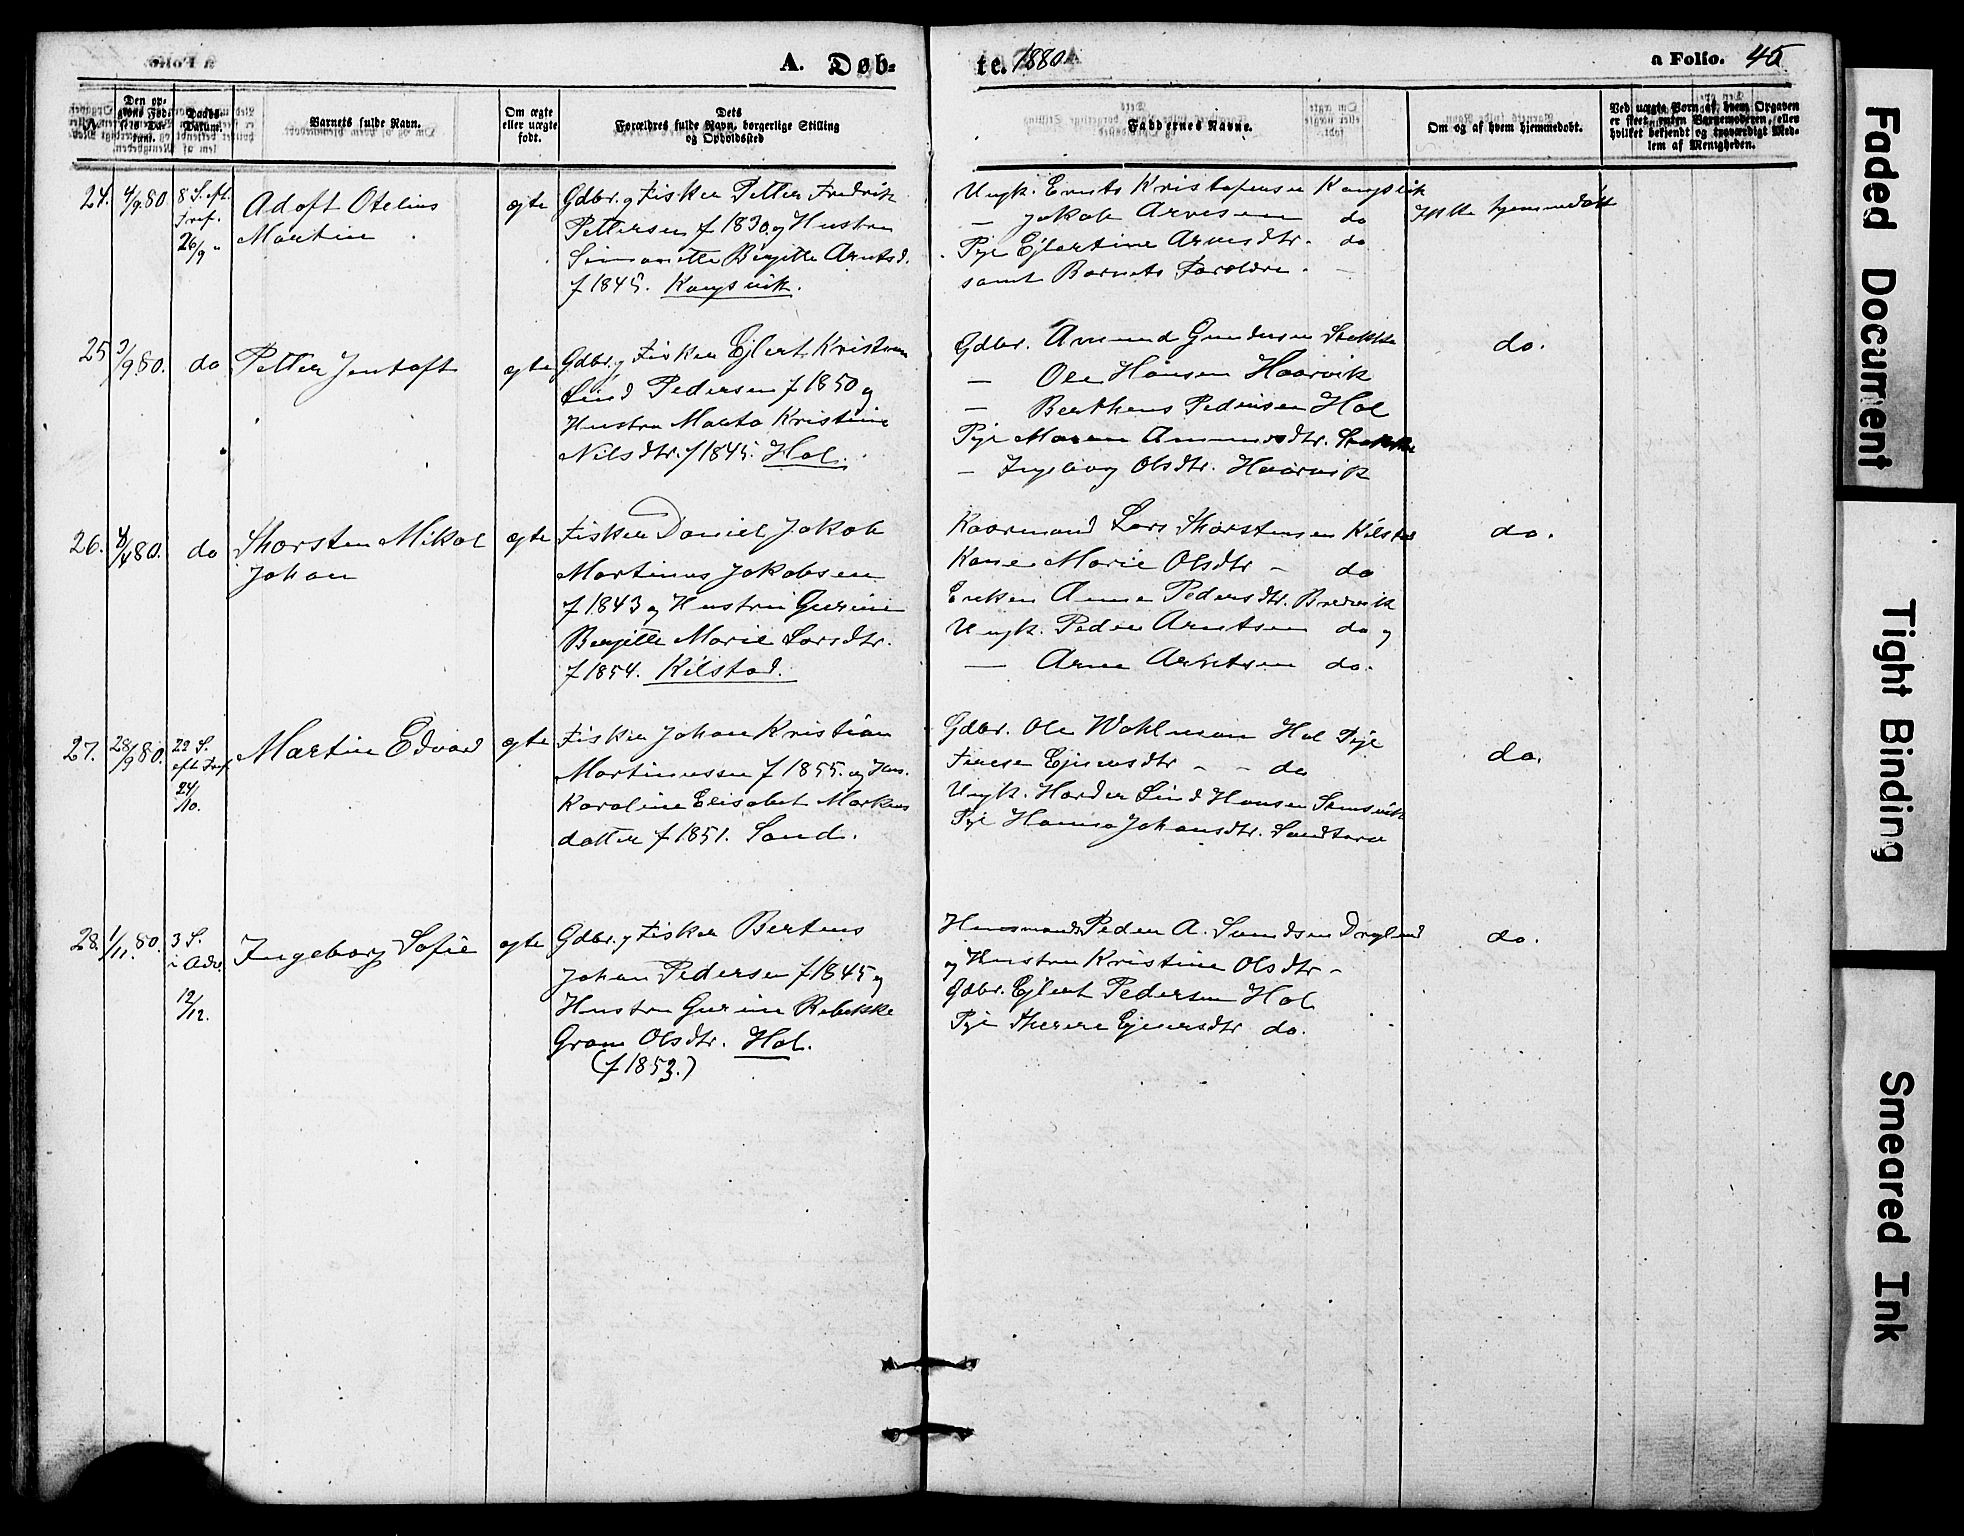 A. Døb-
te. 1880.
a Folio. 45
Den op-
givne Fød-
Daabs-
Datum.
Barnets fulde Navn.
Om ægte
eller uægte
født.
Dets
Forældres fulde Navn, borgerlige Stilling
og Opholdssted
Faddernes Navne.
Om og af hvem hjemmedøbt.
Ved uægte Børn af hvem Opgaven
er skeet, enten Barnemoderen, eller
hvilket bekjendt og troværdigt Med-
lem af Menigheden.
24. 4/9 80
8 S. eft.
Tref.
26/9 "
Adolf Otelius
Martin
ægte
Gdbr. og Fisker Petter Fredrik
Pettersen f 1830 og Hustru
Simonette Bergitte Arntsd.
f 1845. Kongsvik.
Ungk. Ernts Kristofersen Kongsvik
— Jakob Arnesen do
Pige Ejlertine Arnesdtr. do
samt Barnets Forældre. —
Ikke hjemmedøbt
25 3/9 80.
do
Petter Jentoft
ægte
Gdbr. og Fisker Ejlert Kristian
Lind Pedersen f 1850 og
Hustru Marta Kristine
Nilsdtr. f 1845. Hol.
Gdbr. Amund Gundersen Stokke
— Ole Hansen Haarvik
— Bertheus Pedersen Hol
Pige Maren Amundsdtr. Stokke
— Ingeborg Olsdtr. Haarvik
26. 80.
do
Thorsten Mikal
Johan
ægte
Fisker Daniel Jakob
Martinus Jakobsen
f 1843 og Hustru Gurine
Bergitte Marie Larsdtr.
f 1854. Kilstad.
Kaarmand Lars Thorstensen Kilstad
Kone Marie Olsdtr - do
Enken Anne Pedersdtr. Bredvik
Ungk. Peder Arntsen do og
— Arne Arntsen do.
do.
27. 28/9 80.
22 S.
eft. Tref.
24/10.
Martin Edvard
ægte
Fisker Johan Kristian
Martinussen f 1855. og Hus.
Karoline Elisabet Markus
datter f 1851. Sand.
Gdbr. Ole Wohlman Hol Pige
Terese Ejnersdtr - - do
Ungk. Harder Lind Hansen Sandsvik
Pige Hanna Johansdtr. Sandtorv
do.
28. 1/11. 80.
3 S.
i Adv.
12/12.
Ingeborg Sofie
ægte
Gdbr. og Fisker Bertens
Johan Pedersen f 1845 og
Hustru Gurine Rebekke
Gram Olsdtr. Hol.
(f 1853.)
Husmand Peder A. Svendsen Dragland
og Hustru Kristine Olsdtr -
Gdbr. Ejlert Pedersen Hol
Pige Therese Ejnersdtr do.
do.
Faded Document
Tight Binding
Smeared Ink